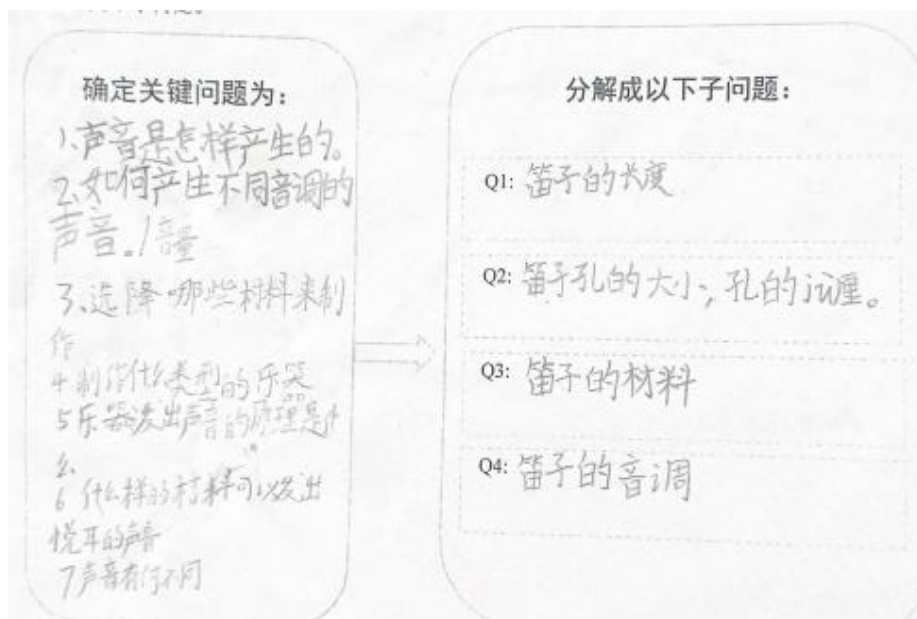 确定关键问题为：
1、声音是怎样产生的。
2、如何产生不同音调的
声音。/音量
3、选择哪些材料来制
作
4 制作什么类型的乐器
5 乐器发出声音的原理是什
么
6 什么样的材料可以发出
悦耳的声音
7 声音有何不同
分解成以下子问题：
Q1: 笛子的长度
Q2: 笛子孔的大小，孔的
Q3: 笛子的材料
Q4: 笛子的音调